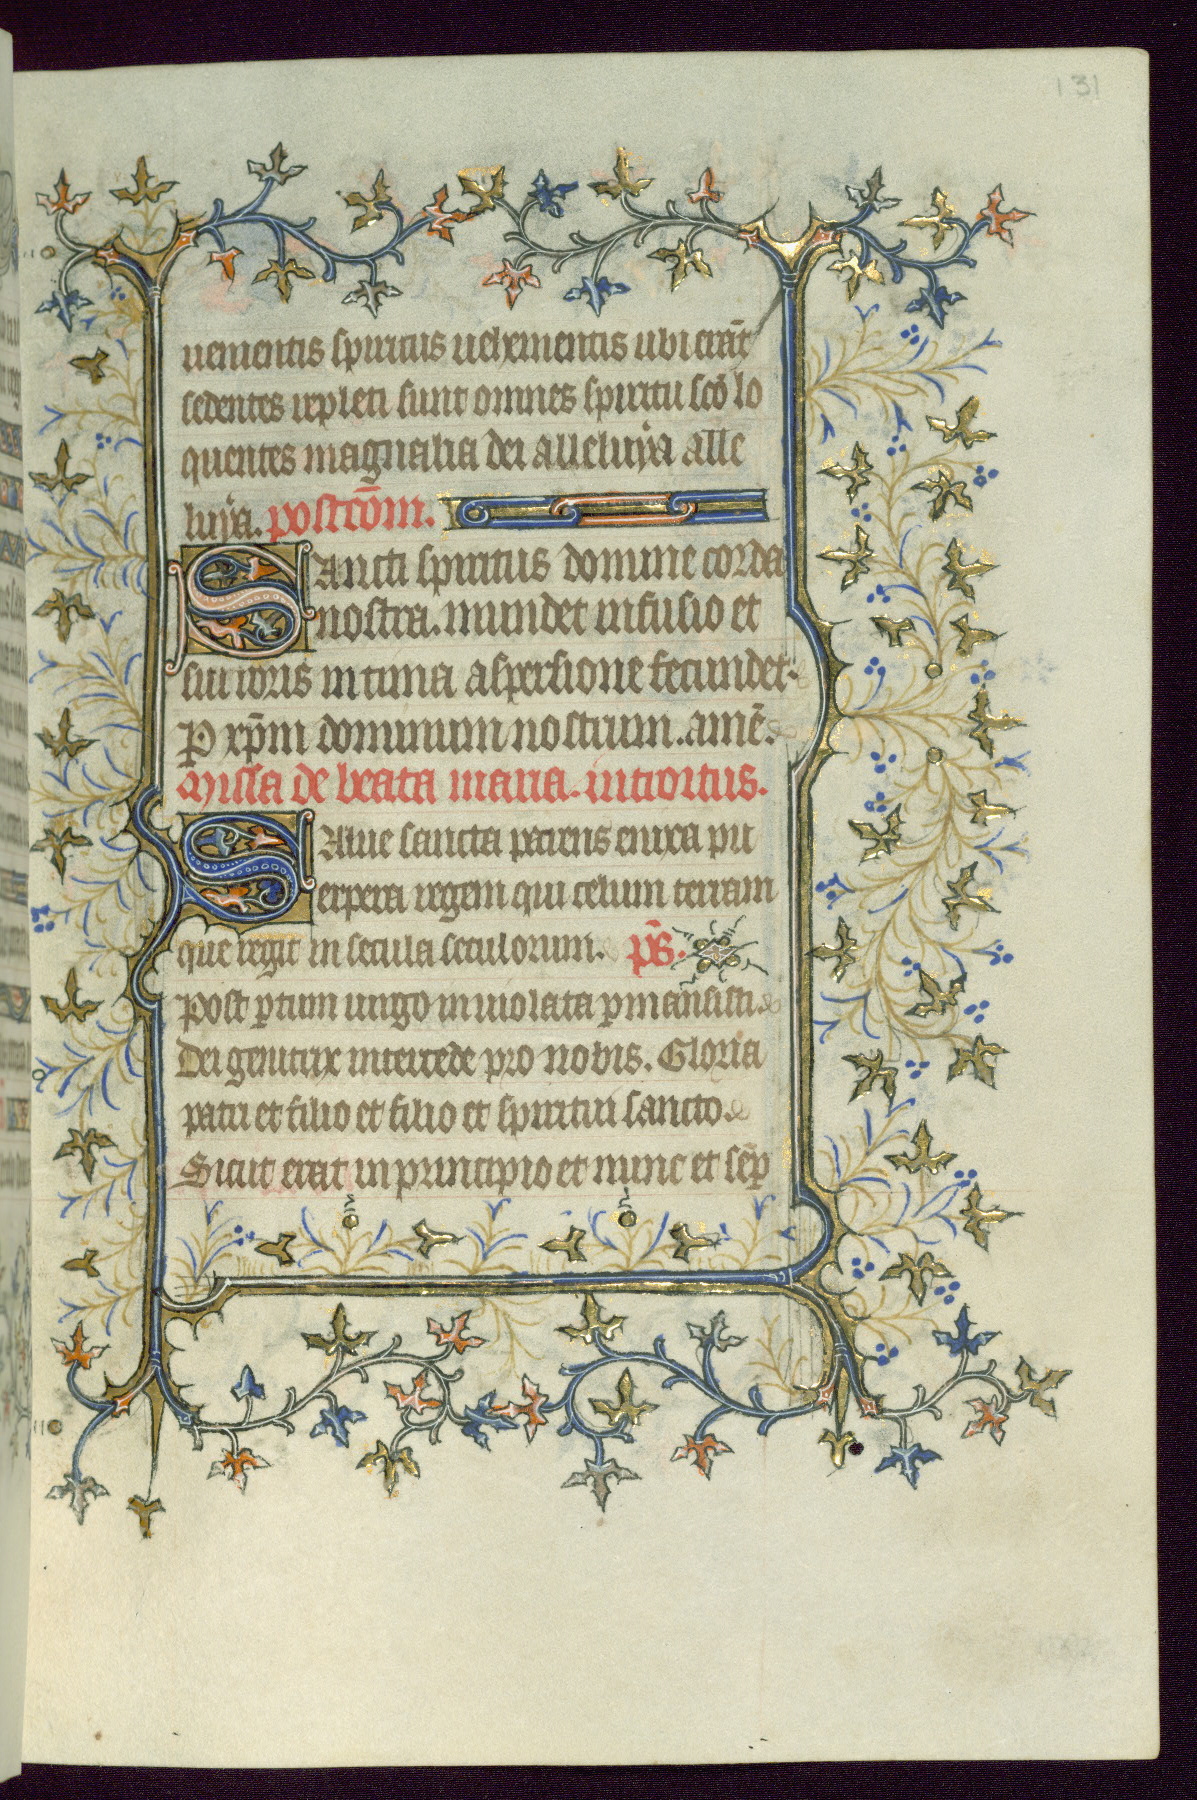 131
uenientis spiritus uehementis ubi erāt
sedentes repleti sunt omnes spiritu scō lo
quentes magnalia dei alleluya alle
luya. postcōm.
Sancti spiritus domine corda
nostra. mundet infusio et
sui roris intima aspersione fecundet.
P xp̄m dominum nostrum. amē.
Missa de beata maria. introitus.
Salue sancta parens enixa pu
erpera regem qui celum terram
que regit in secula seculorum. p̄s.
Post ꝑtum uirgo inuiolata ꝑmansisti.
Dei genitrix intercede pro nobis. Gloria
patri et filio et filio et spiritui sancto.
Sicut erat in principio et nunc et sēp